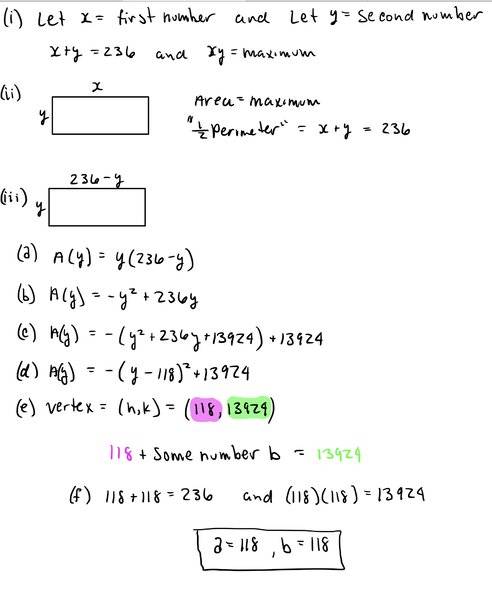 (i) Let x = first number and Let y = second number
x+y = 236 and xy = maximum
(ii) x
y
Area = maximum
"1/2 perimeter" = x+y = 236
236-y
(iii) y
(a) A(y) = y(236-y)
(b) A(y) = -y² + 236y
(c) A(y) = -(y² + 236y + 13924) + 13924
(d) A(y) = -(y - 118)² + 13924
(e) vertex = (h,k) = (118, 13924)
118 + some number b = 13924
(f) 118 + 118 = 236 and (118)(118) = 13924
a = 118 , b = 118